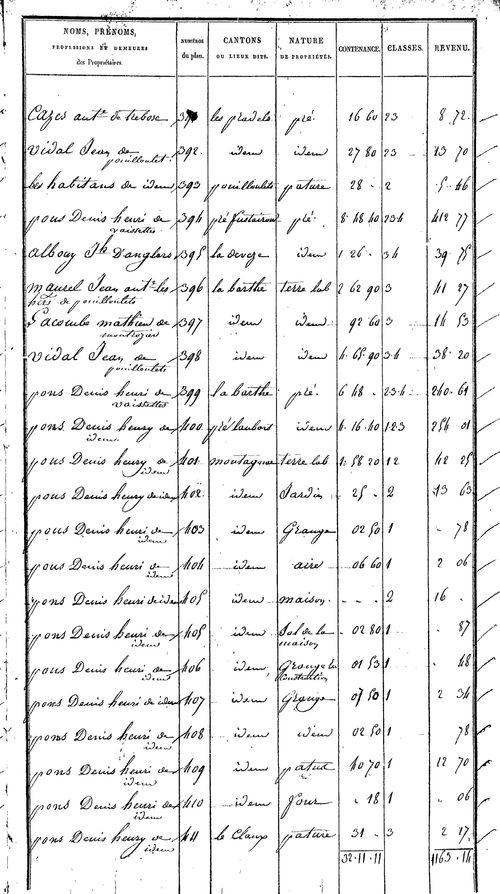 NOMS, PRÉNOMS, PROFESSIONS ET DEMEURES des Propriétaires. NUMÉROS du plan. CANTONS OU LIEUX DITS. NATURE DE PROPRIÉTÉS. CONTENANCE. CLASSES. REVENU.
Cazes ant.e de trebosc les pradels pré. 16 60 23 8 72.
Vidal Jean de pouilloutet. 392. idem idem 27 80 23 13 70
les habitans de idem 393 pouilloutets pature 28 - 2 5 46
pons Denis henri de vaissettes 394 pré pré. 8 48 40 23 4 412 77
albouy Jh D'anglars 395 la deveze idem 1 26 - 34 39 75
maurel Jean ant. les hers de pouilloutets 396 la barthe terre lab 2 62 90 3 41 27
Lacombe mathieu de montrozier 397 idem idem 92 60 3 14 53
Vidal Jean de pouilloutets 398 idem idem 4. 65 90 34 38. 20
pons Denis henri de vaissettes 399 la barthe pré. 6 48 - 23 4 240. 61
pons Denis henry de idem. 400 idem 4. 16. 40 123 254 01
pons Denis henry de idem 401 montagnac terre lab 1. 58 20 12 42 25
pons Denis henry de idem 402 idem Jardin 25 - 2 13 63
pons Denis henri de idem 403 idem Grange 02 50 1 - 78
pons Denis henri de idem 404 idem aire 06 60 1 2 06
pons Denis henri de idem 405 idem maison. - - - 2 16 -
pons Denis henri de idem 405 idem Sol de la maison - 02 80 1 - 87
pons Denis henri de idem 406 idem Grange en Construction 01 53 1 48
pons Denis henri de idem 407 idem Grange 07 50 1 2 34
pons Denis henri de idem 408 idem idem 02 50 1 78
pons Denis henri de idem 409 idem pature 40 70 1 12 70
pons Denis henri de idem 410 idem four - 18 1 - 06
pons Denis henry de idem 411 le Claux pature 31 - 3 2 17.
32. 11. 11 1163. 14